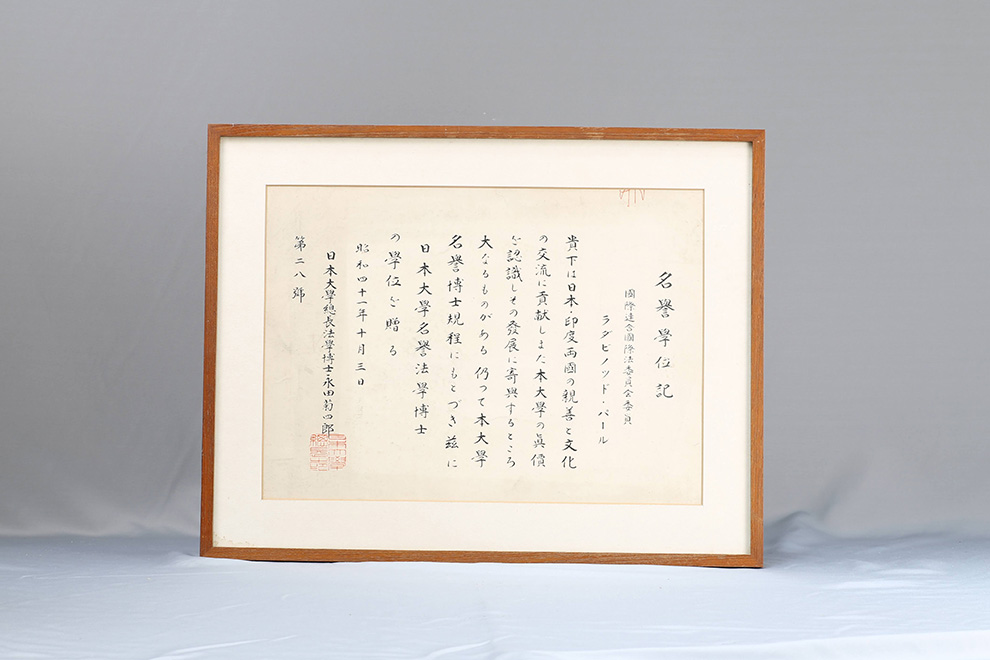 名譽學位記
國際連合國際法委員会委員
ラダビノッド・パール
貴下は日本・印度両國の親善と文化
の交流に貢献しまた本大學の眞價
を認識しその發展に寄與するところ
大なるものがある仍つて本大學
名誉博士規程にもとづき茲に
日本大學名誉法學博士
の學位を贈る
昭和四十一年十月三日
日本大學總長法學博士永田菊四郎
第二八號